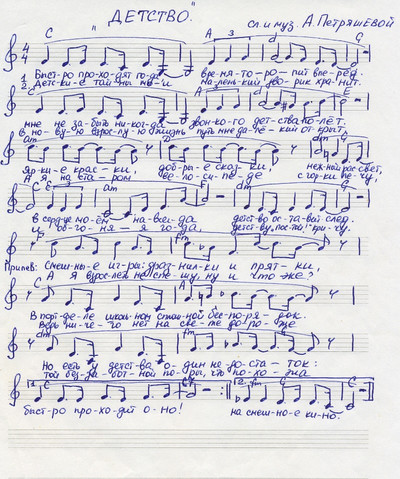 "ДЕТСТВО."
сл. и муз. А. Петряшевой
C A 3 d G
1. Быст-ро про-хо-дят го-да, вре-мя то-ро-пит впе-рёд.
2. Детс-ки-е тай-ны мо-и ма-лень-кий дво-рик хра-нит.
мне не за-быть ни-ког-да звон-ко-го детс-тва по-лёт.
В но-ву-ю взрос-лу-ю жизнь путь мне да-ле-кий от-крыт,
Яр-ки-е крас-ки, доб-ры-е сказ-ки, неж-ный рас-свет,
А я, на ста-ром ве-ло-си-пе-де с гор-ки ле-чу,
В серд-це мо-ём на-всег-да детс-тво ос-та-вит след.
и до-го-ня-я го-да, детс-тву "пос-той!" кри-чу.
Припев: Смеш-ны-е иг-ры: драз-нил-ки и прят-ки
А я взрос-леть не спе-шу, ну и что же?
В порт-фе-ле школь-ном сплош-ной бес-по-ря-док.
Ведь ни-че-го нет на све-те до-ро-же
Но есть у детс-тва о-дин не-до-ста-ток:
той без-за-бот-ной по-ры, что по-хо-жа
1. 2. fm C
быст-ро про-хо-дит о-но! на смеш-но-е ки-но.